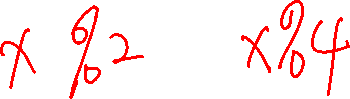 x%2 x%4